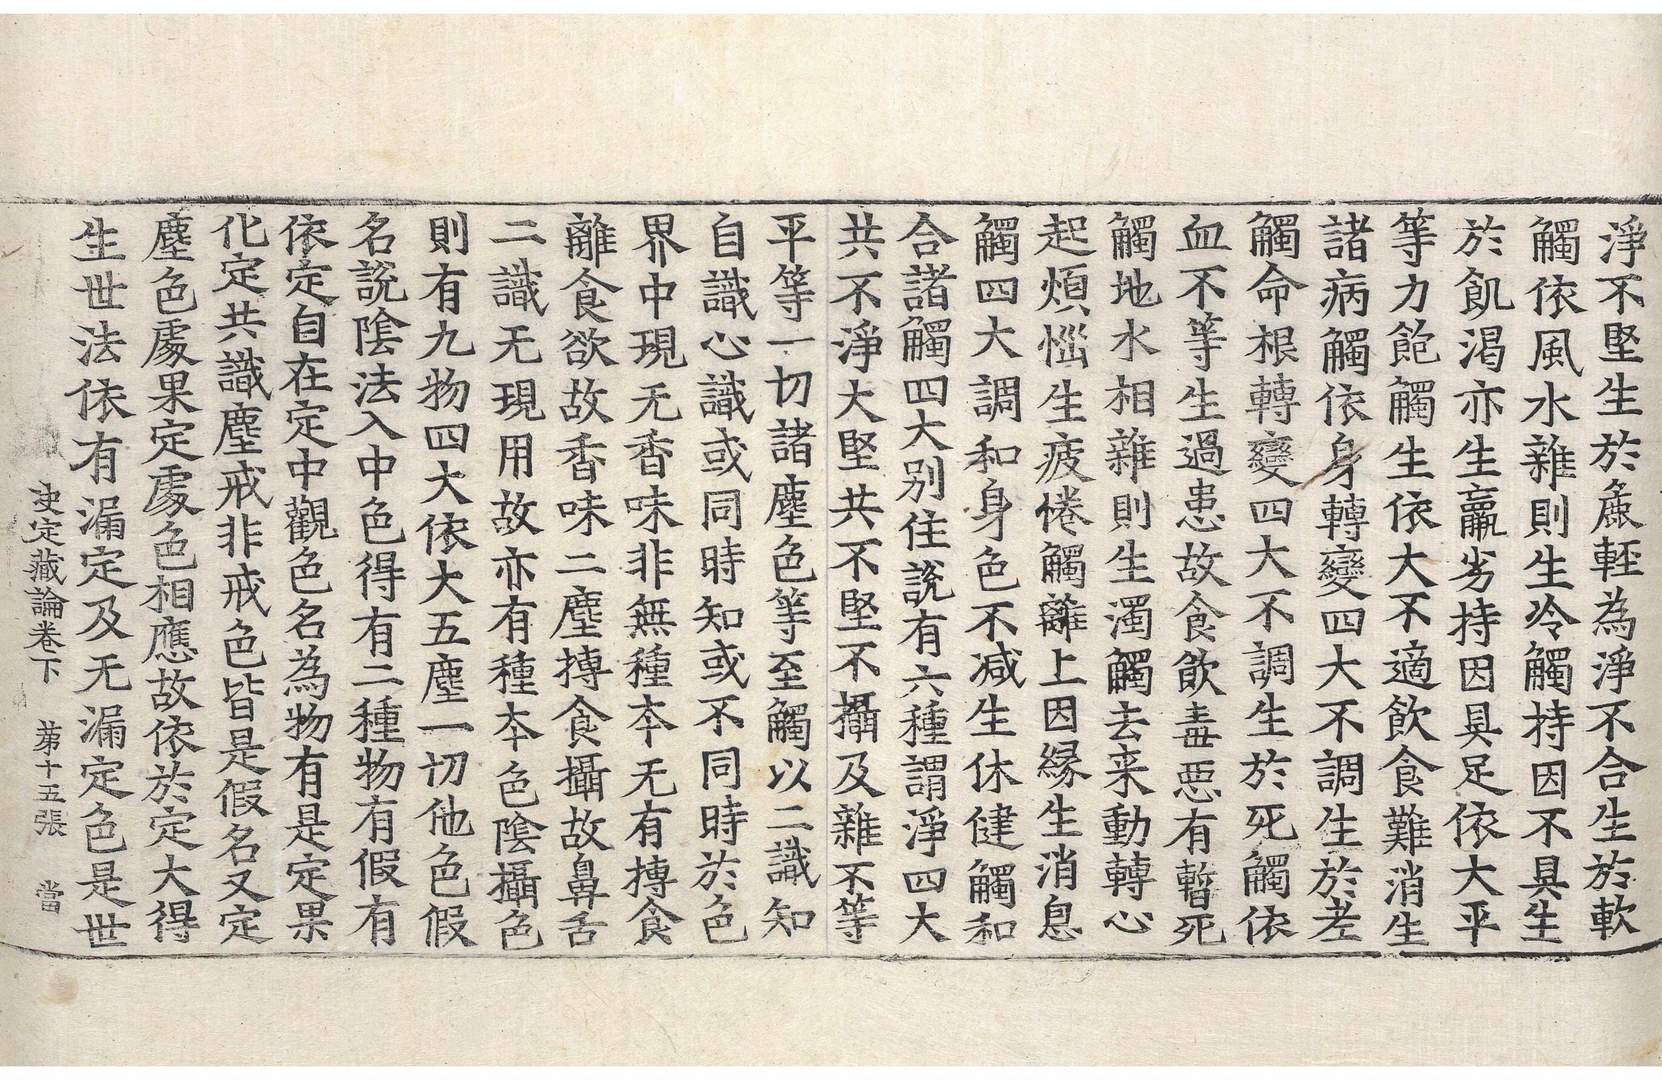 淨不堅生於麁輕為淨不合生於軟
觸依風水雜則生冷觸持因不具生
於飢渴亦生羸劣持因具足依大平
等力飽觸生依大不適飲食難消生
諸病觸依身轉變四大不調生於差
觸命根轉變四大不調生於死觸依
血不等生過患故食飲毒惡有暫死
觸地水相雜則生濁觸去来動轉心
起煩惱生疲惓觸離上因緣生消息
觸四大調和身色不减生休健觸和
合諸觸四大別住說有六種謂淨四大
共不淨大堅共不堅不攝及雜不等
平等一切諸塵色等至觸以二識知
自識心識或同時知或不同時於色
界中現无香味非無種本无有摶食
離食欲故香味二塵摶食攝故鼻舌
二識无現用故亦有種夲色陰攝色
則有九物四大依大五塵一切他色假
名說陰法入中色得有二種物有假有
依定自在定中觀色名為物有是定果
化定共識塵戒非戒色皆是假名又定
塵色處果定處色相應故依於定大得
生世法依有漏定及无漏定色是世
决定藏論卷下 苐十五張 當